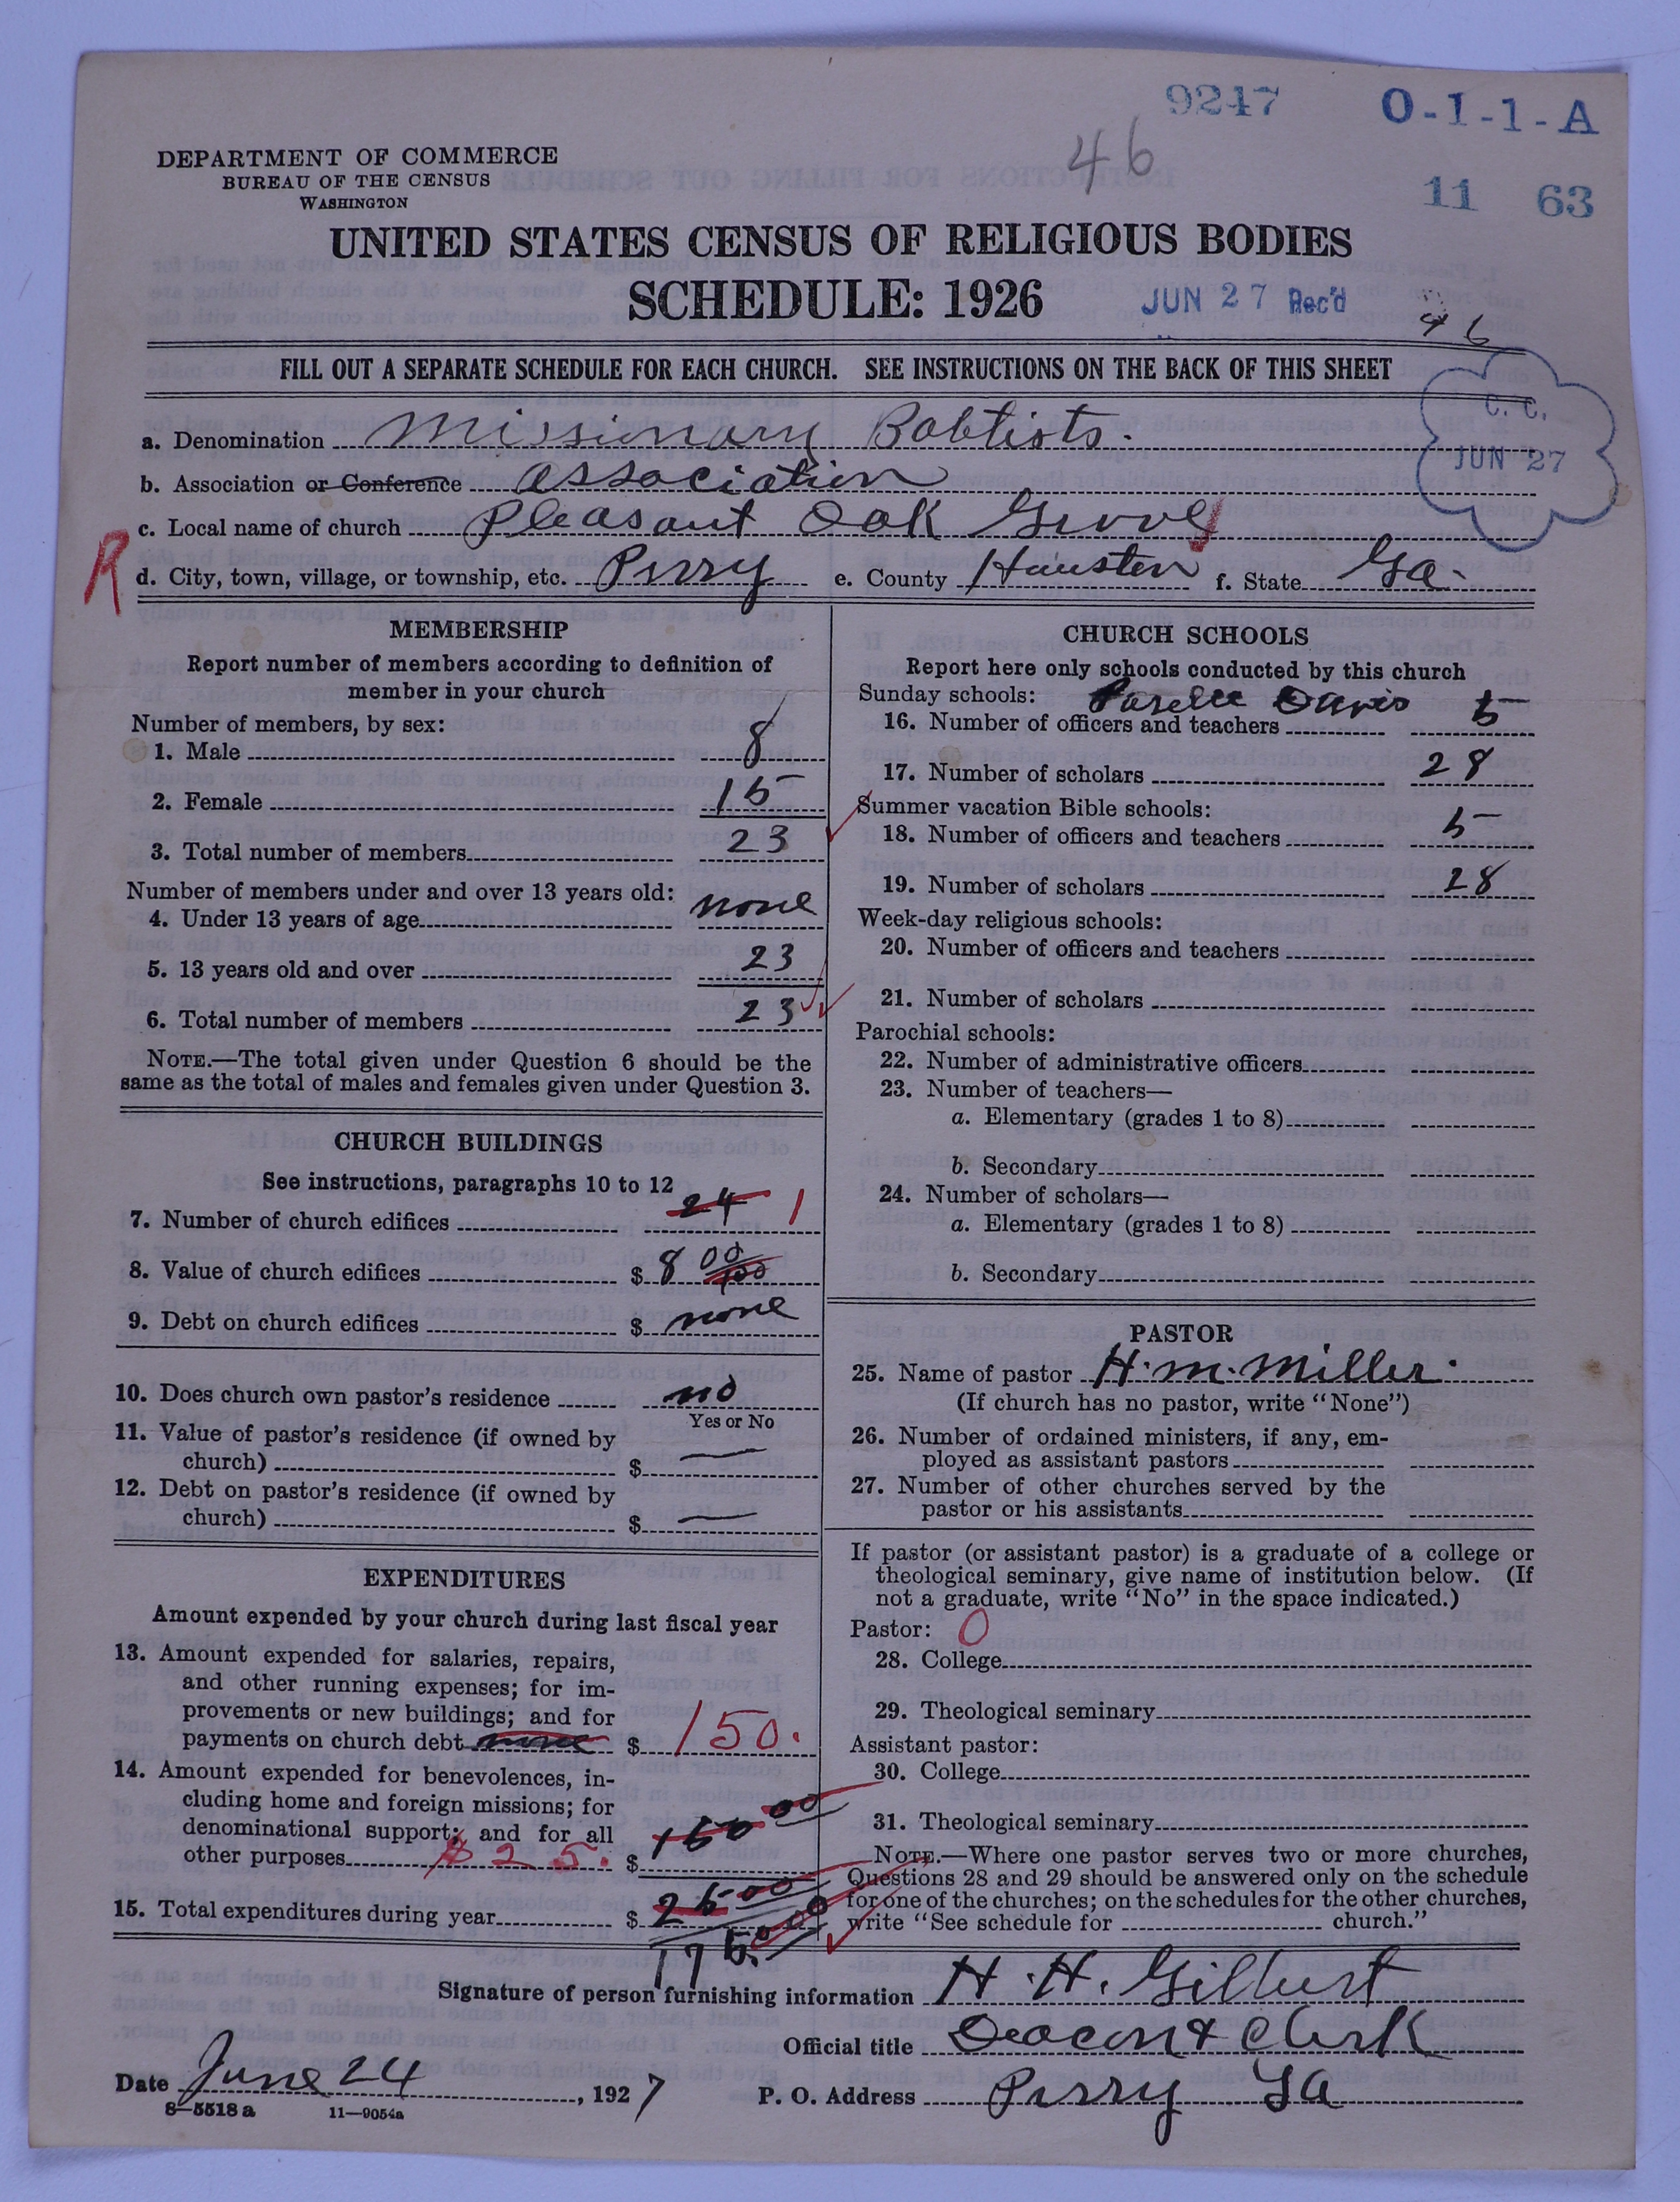 9247 O-1-1-A
46
11 63
DEPARTMENT OF COMMERCE
BUREAU OF THE CENSUS
WASHINGTON
UNITED STATES CENSUS OF RELIGIOUS BODIES
SCHEDULE: 1926 JUN 27 Rec'd
46
FILL OUT A SEPARATE SCHEDULE FOR EACH CHURCH. SEE INSTRUCTIONS ON THE BACK OF THIS SHEET
C. C.
JUN 27
a. Denomination Missionary Babtists.
b. Association or Conference Association
c. Local name of church Pleasant Oak Grove
R
d. City, town, village, or township, etc. Perry e. County Houston f. State Ga.
MEMBERSHIP
Report number of members according to definition of
member in your church
Number of members, by sex:
1. Male 8
2. Female 15
3. Total number of members 23
Number of members under and over 13 years old:
4. Under 13 years of age none
5. 13 years old and over 23
6. Total number of members 23
NOTE.—The total given under Question 6 should be the
same as the total of males and females given under Question 3.
CHURCH BUILDINGS
See instructions, paragraphs 10 to 12
7. Number of church edifices 24 1
8. Value of church edifices $ 800
9. Debt on church edifices $ none
10. Does church own pastor's residence no
Yes or No
11. Value of pastor's residence (if owned by
church) $ —
12. Debt on pastor's residence (if owned by
church) $ —
EXPENDITURES
Amount expended by your church during last fiscal year
13. Amount expended for salaries, repairs,
and other running expenses; for im-
provements or new buildings; and for
payments on church debt none $ 150.
14. Amount expended for benevolences, in-
cluding home and foreign missions; for
denominational support; and for all
other purposes $25. $ 150 00
15. Total expenditures during year $ 25 00
175.00
CHURCH SCHOOLS
Report here only schools conducted by this church
Sunday schools: Davis
16. Number of officers and teachers 5
17. Number of scholars 28
Summer vacation Bible schools:
18. Number of officers and teachers 5
19. Number of scholars 28
Week-day religious schools:
20. Number of officers and teachers
21. Number of scholars
Parochial schools:
22. Number of administrative officers
23. Number of teachers—
a. Elementary (grades 1 to 8)
b. Secondary
24. Number of scholars—
a. Elementary (grades 1 to 8)
b. Secondary
PASTOR
25. Name of pastor H. M. Miller.
(If church has no pastor, write "None")
26. Number of ordained ministers, if any, em-
ployed as assistant pastors
27. Number of other churches served by the
pastor or his assistants
If pastor (or assistant pastor) is a graduate of a college or
theological seminary, give name of institution below. (If
not a graduate, write "No" in the space indicated.)
Pastor: 0
28. College
29. Theological seminary
Assistant pastor:
30. College
31. Theological seminary
NOTE.—Where one pastor serves two or more churches,
Questions 28 and 29 should be answered only on the schedule
for one of the churches; on the schedules for the other churches,
write "See schedule for church."
Signature of person furnishing information H. H. Gilbert
Official title Deacon & Clerk
Date June 24, 1927 P. O. Address Perry Ga
8—5518 a 11—9054a